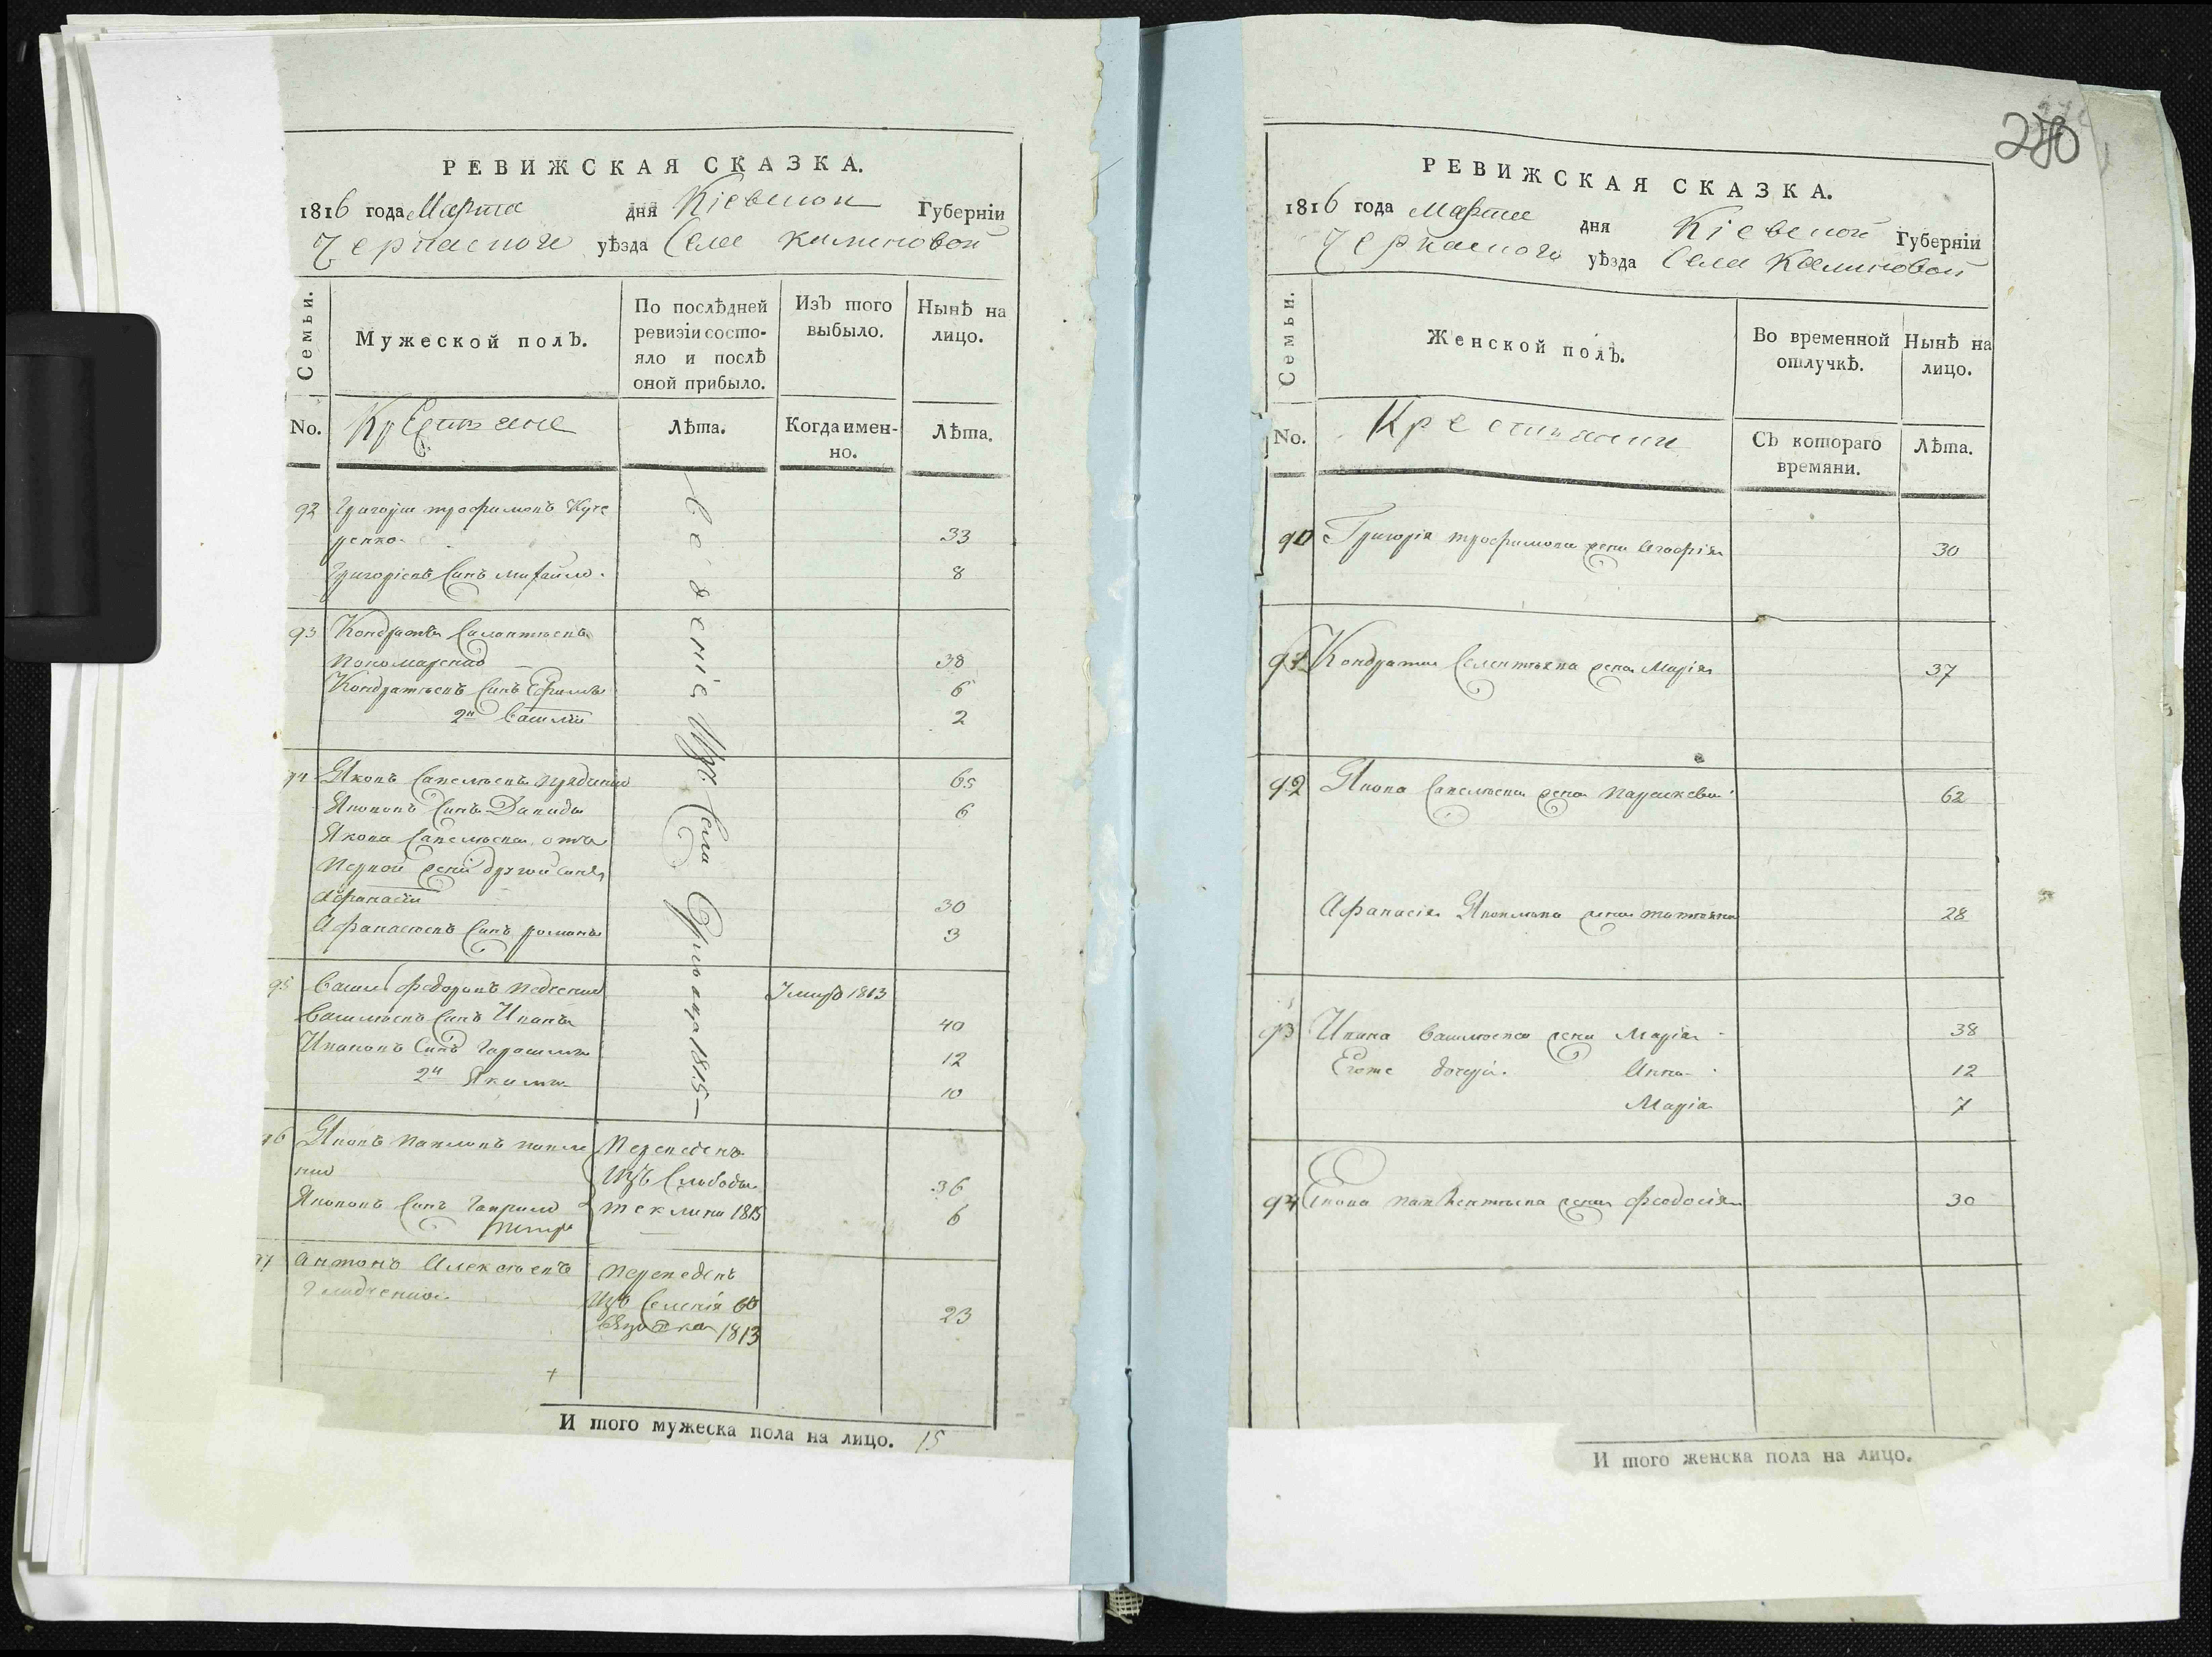 РЕВИЖСКАЯ СКАЗКА.
1816 года Марта дня Кіевской Губерніи
Черкаского уѣзда Села Калиновой
Семьи.
Мужеской полЪ.
По послѣдней ревизіи состояло и послѣ оной прибыло.
ИзЪ того выбыло.
Нынѣ на лицо.
No.
Крестьяне
Лѣта.
Когда именно.
Лѣта.
92 Григорій трофимовъ Куче
ренко 33
Григоріевъ Синъ михайло 8
93 Кондратъ
пономаренко 38
Кондратьевъ Синъ Ефимъ 6
2й Василій 2
94 Яковъ Савельевъ 65
Якововъ Синъ Давидъ 6
Якова Савельева отъ
первой жени другой синъ
Афанасій 30
Афанасіевъ Синъ романъ 3
95 Василь федоровъ Умеръ 1813
Васильевъ Синъ Иванъ 40
Ивановъ Синъ Гарасимъ 12
2й Якимъ 10
Села 1815
96 Яковъ Павловъ переведенъ
изъ Слободы 36
Якововъ Синъ Гаврило теклина 1815 6
97 антонъ Алексѣевъ переведенъ
изъ Селенія 23
1813
И того мужеска пола на лицо. 15
280
РЕВИЖСКАЯ СКАЗКА.
1816 года Марта дня Кіевской Губерніи
Черкаского уѣзда Села Калиновой
Семьи.
Женской полЪ.
Во временной отлучкѣ.
Нынѣ на лицо.
No.
Крестьянки
СЪ котораго времяни.
Лѣта.
90 Григорія трофимова жена Агафія 30
91 Кондратия жена Марія 37
92 Якова Савельева жена параскевия 62
Афанасія Яковлева жена татьяна 28
93 Ивана Васильева жена Марія 38
Егоже дочери Анна 12
Марія 7
94 жена феодосія 30
И того женска пола на лицо.